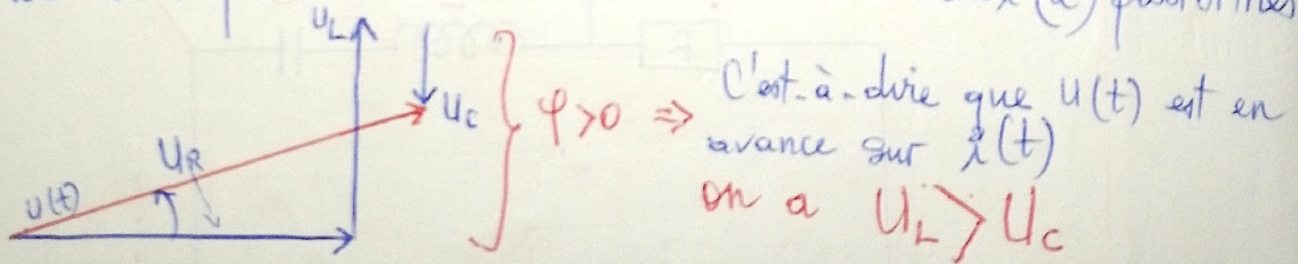 (a) 
U_L
U_C
U_R
u(t)
φ>0 ⇒
C'est-à-dire que u(t) est en
avance sur i(t)
on a U_L > U_C